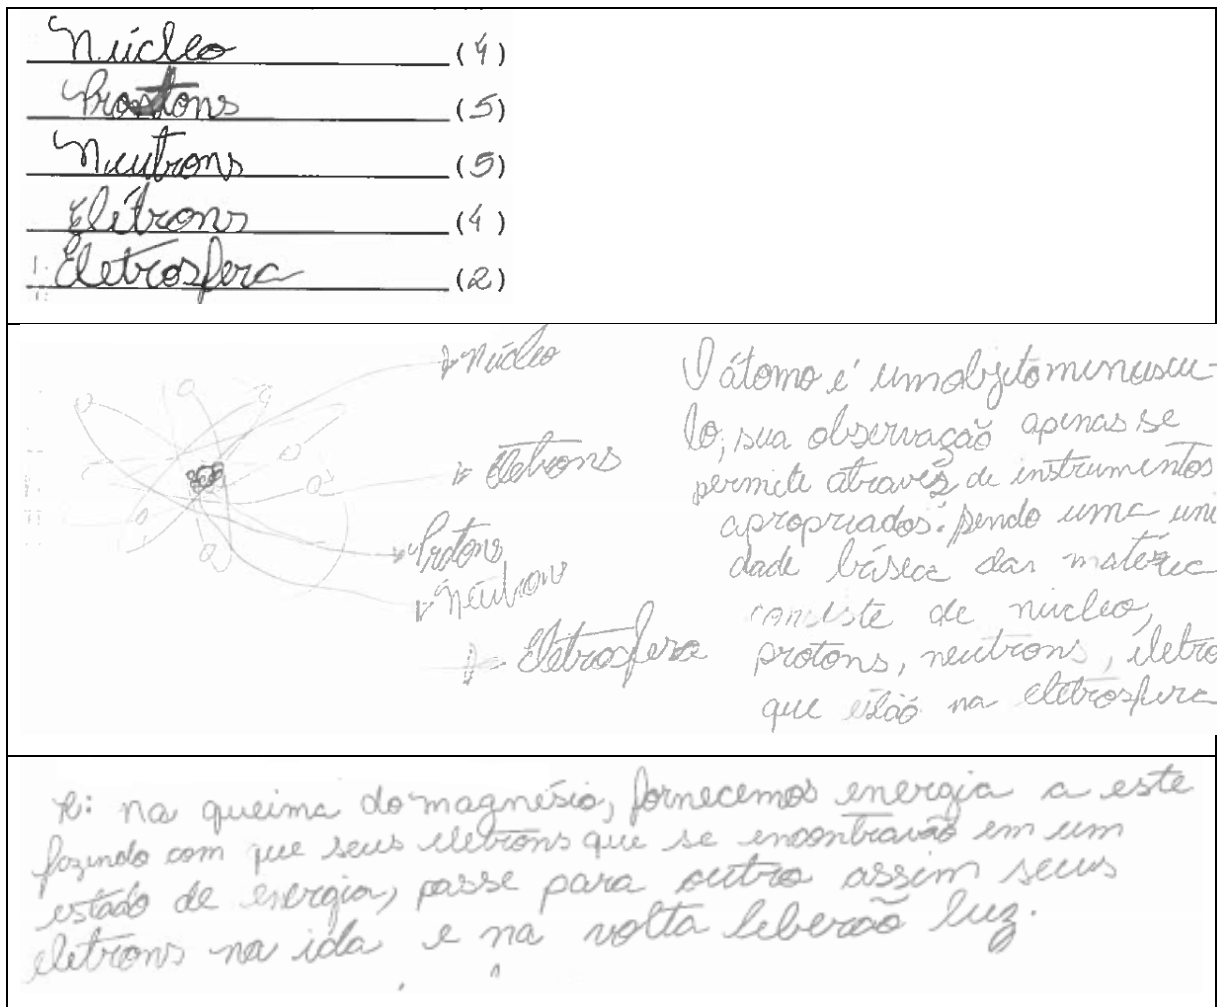 Núcleo (4)
Prótons (5)
Neutrons (5)
Elétrons (4)
Eletrosfera (2)
Núcleo
Eletrons
Protons
Neutrons
Eletrosfera
O átomo é um objeto minuscu-
lo, sua observação apenas se
permite através de instrumentos
apropriados. sendo uma uni
dade básica da matéria
consiste de nucleo,
protons, neutrons, eletro
que estão na eletrosfera
R: na queima do magnésio, fornecemos energia a este
fazendo com que seus eletrons que se encontravão em um
estado de energia, passe para outro assim seus
eletrons na ida e na volta liberão luz.